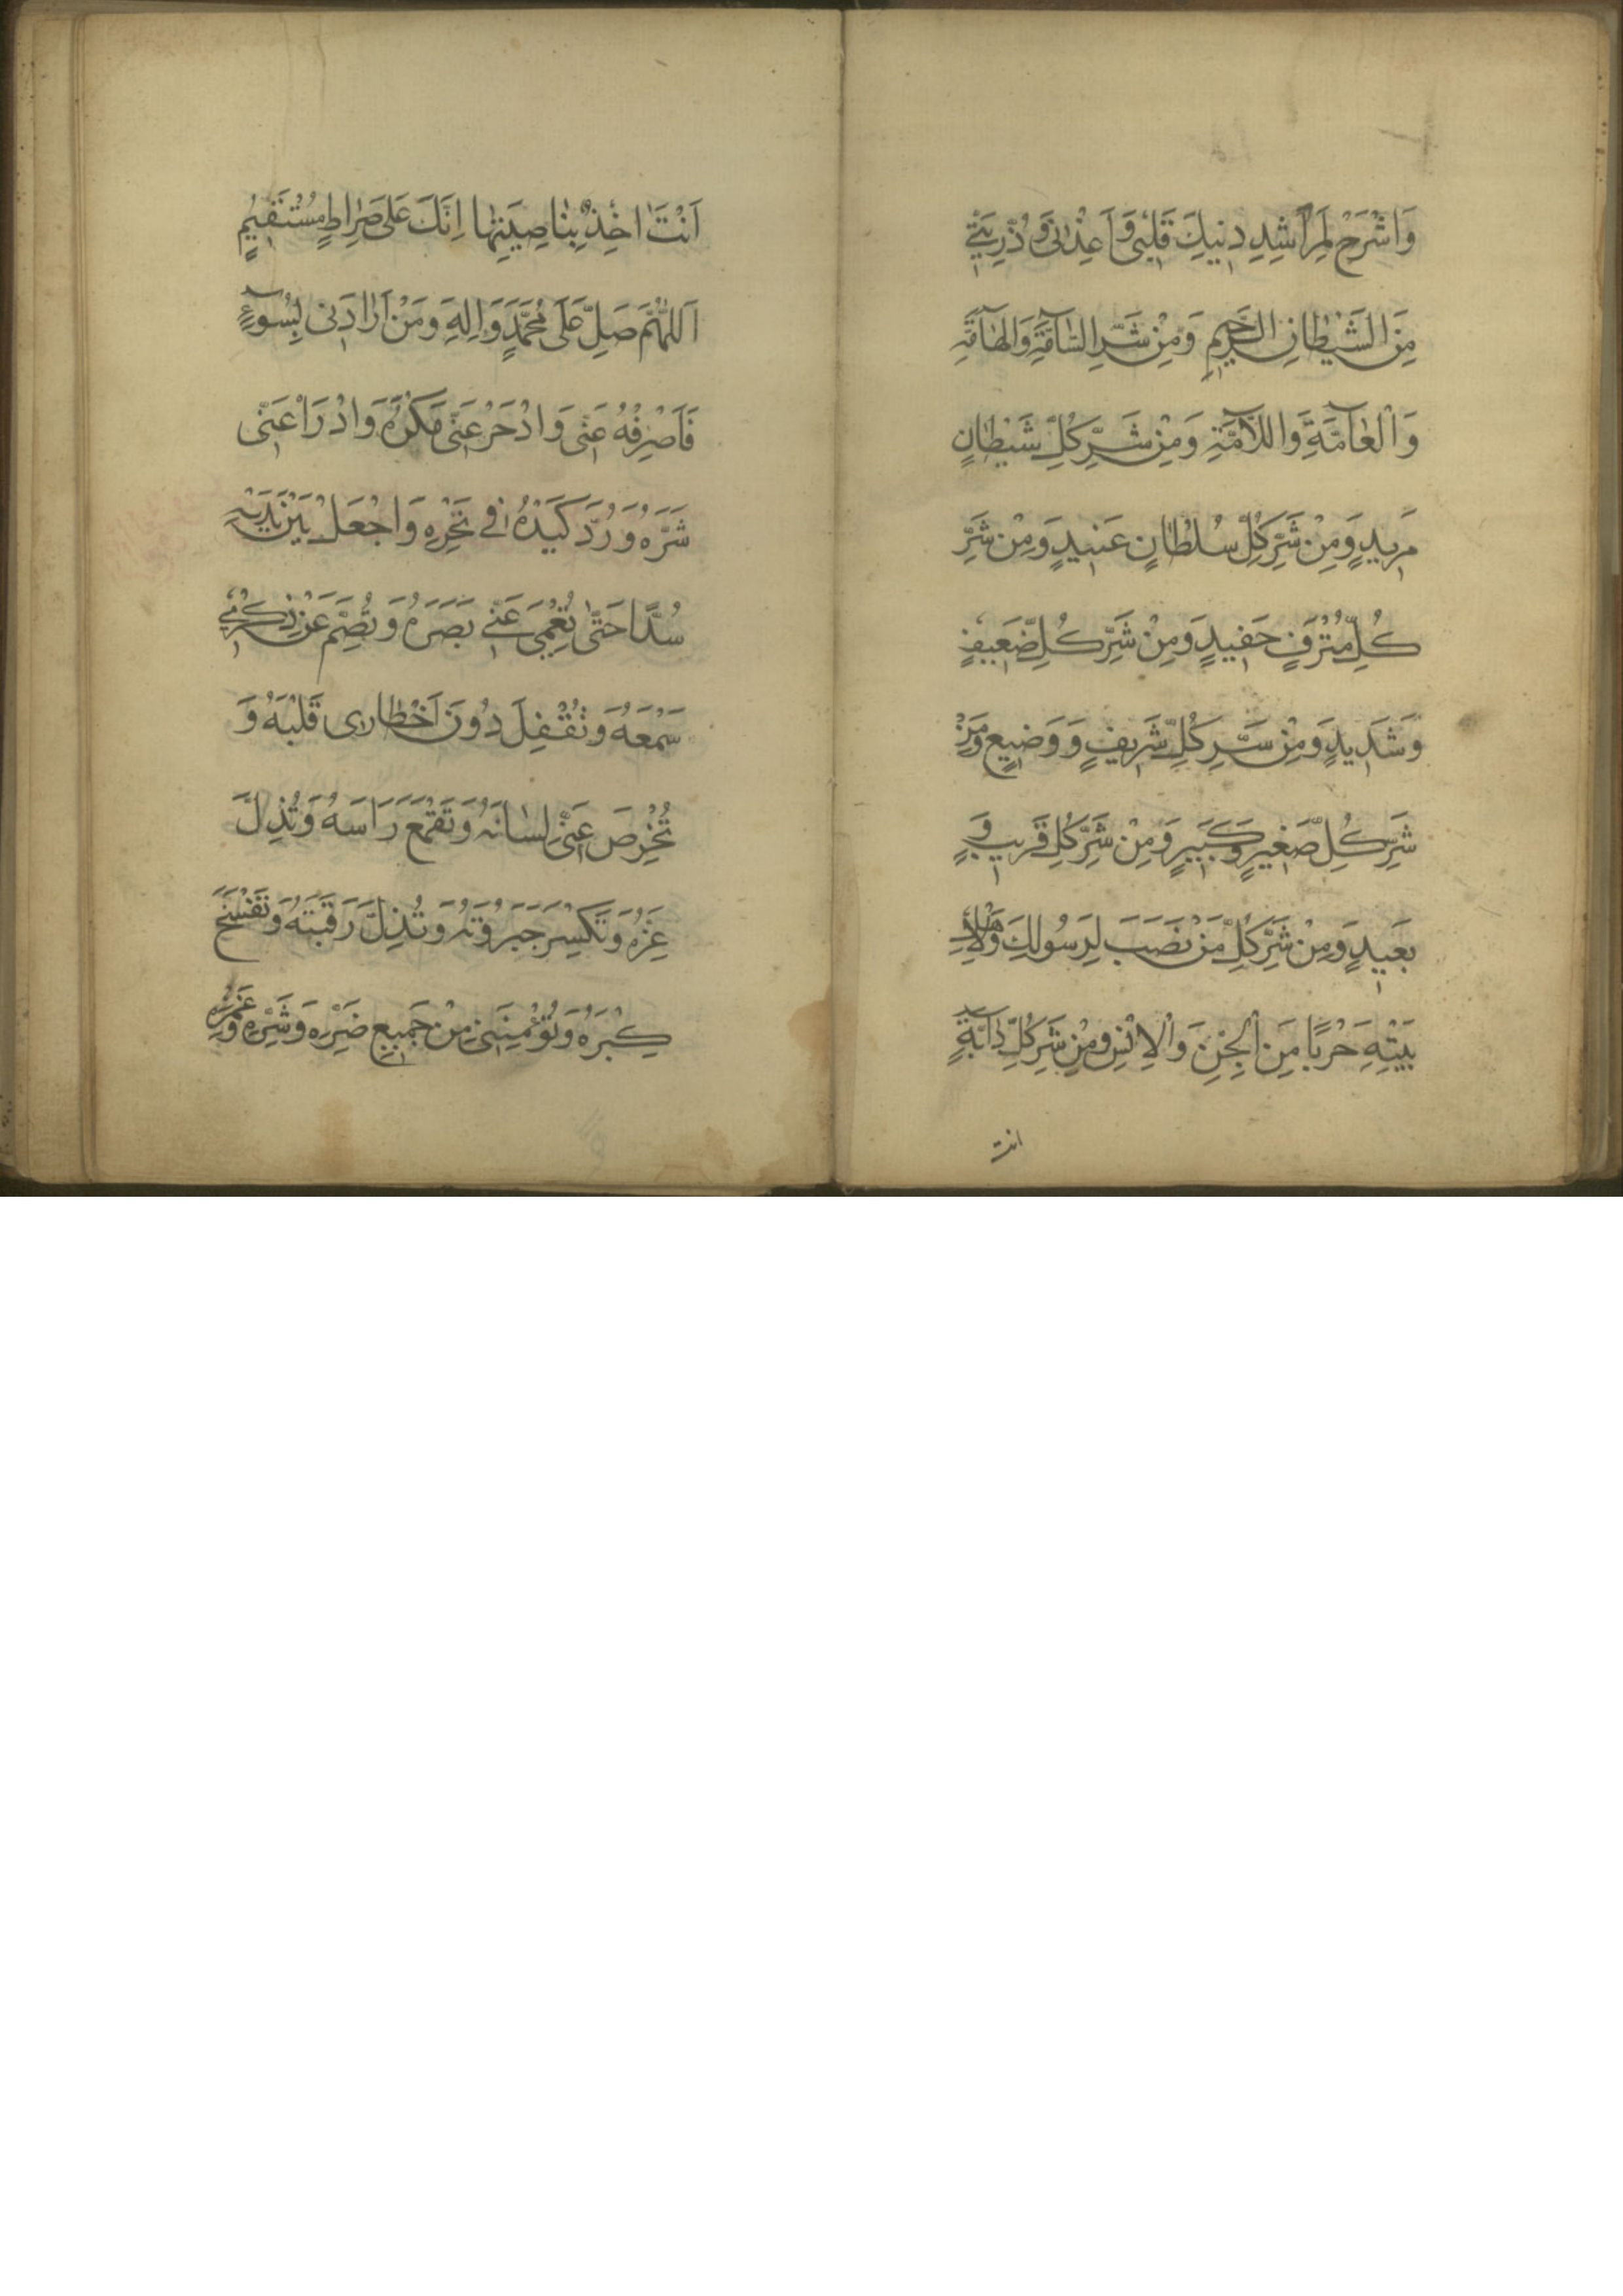 وَاشْرَحْ لِمَرَاشِدِ دِينِكَ قَلْبِی وَاَعِذْنِی وَذُرِّيَّتِی
مِنَ الشَّيْطَانِ الرَّجِيمِ وَمِنْ شَرِّ السَّآمَّةِ وَالْهَآمَّةِ
وَالْعَآمَّةِ وَاللَّآمَّةِ وَمِنْ شَرِّ كُلِّ شَيْطَانٍ
مَرِيدٍ وَمِنْ شَرِّ كُلِّ سُلْطَانٍ عَنِيدٍ وَمِنْ شَرِّ
كُلِّ مُتْرَفٍ حَفِيدٍ وَمِنْ شَرِّ كُلِّ ضَعِيفٍ
وَشَدِيدٍ وَمِنْ شَرِّ كُلِّ شَرِيفٍ وَوَضِيعٍ وَمِنْ
شَرِّ كُلِّ صَغِيرٍ وَكَبِيرٍ وَمِنْ شَرِّ كُلِّ قَرِيبٍ وَ
بَعِيدٍ وَمِنْ شَرِّ كُلِّ مَنْ نَصَبَ لِرَسُولِكَ وَلِاَهْلِ
بَيْتِهِ حَرْبًا مِنَ الْجِنِّ وَالْاِنْسِ وَمِنْ شَرِّ كُلِّ دَآبَّةٍ
انت
اَنْتَ اٰخِذٌ بِنَاصِيَتِهَا اِنَّكَ عَلٰی صِرَاطٍ مُسْتَقِيمٍ
اَللّٰهُمَّ صَلِّ عَلٰی مُحَمَّدٍ وَاٰلِهِ وَمَنْ اَرَادَنِی بِسُوٓءٍ
فَاصْرِفْهُ عَنِّی وَادْحَرْ عَنِّی مَكْرَهُ وَادْرَاْ عَنِّی
شَرَّهُ وَرُدَّ كَيْدَهُ فِی نَحْرِهِ وَاجْعَلْ بَيْنَ يَدَيْهِ
سُدًّا حَتّٰی تُعْمِیَ عَنِّی بَصَرَهُ وَتُصِمَّ عَنْ ذِكْرِی
سَمْعَهُ وَتُقْفِلَ دُونَ اَخْطَارِی قَلْبَهُ وَ
تُخْرِصَ عَنِّی لِسَانَهُ وَتَقْمَعَ رَاْسَهُ وَتُذِلَّ
عِزَّهُ وَتَكْسِرَ جَبَرُوتَهُ وَتُذِلَّ رَقَبَتَهُ وَتَفْسَخَ
كِبْرَهُ وَتُؤْمِنَنِی مِنْ جَمِيعِ ضَرِّهِ وَشَرِّهِ وَغَمْزِهِ